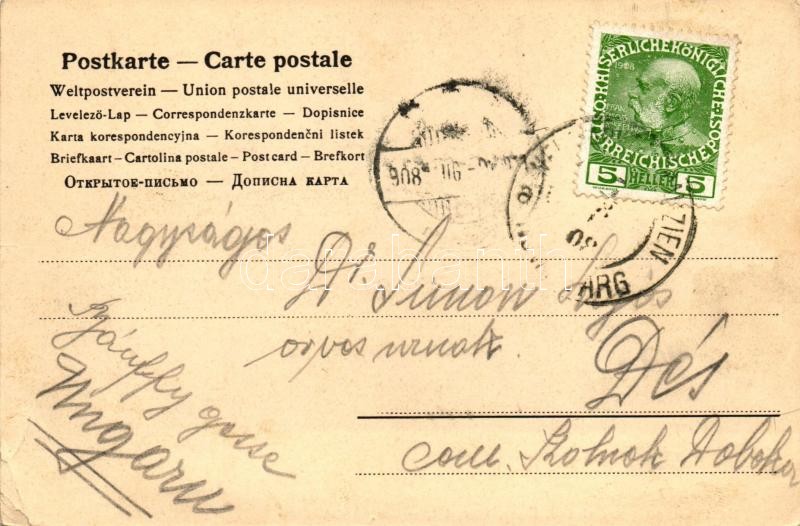 Postkarte — Carte postale
Weltpostverein — Union postale universelle
Levelezö-Lap — Correspondenzkarte — Dopisnice
Karta korespondencyjna — Korespondenčni listek
Briefkaart – Cartolina postale – Post card – Brefkort
Открытое-письмо — Дописна карта
908
08
ZIEN
KAISERLICHEKÖNIGLICHE
ÖSTERREICHISCHE POST
1908
5 HELLER 5
Nagyságos
Dr. Simon Lajos
orvos urnak.
Dés
com. Szolnok Doboka
Bánffy gasse
Ungarn
darabanth